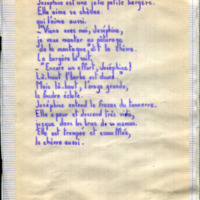 Joséphine est une jolie petite bergère.
Elle aime sa chèvre
qui l'aime aussi.
"Viens avec moi, Joséphine,
je veux monter au pâturage
de la montagne" dit la chèvre.
La bergère la suit,
"Encore un effort, Joséphine!
Là-haut l'herbe est
Mais là-haut, l'orage gronde,
la foudre éclate.
Joséphine entend le fracas du tonnerre.
Elle a peur et descend très vite,
jusque dans les bras de sa maman.
Elle est trempée et
la chèvre aussi.